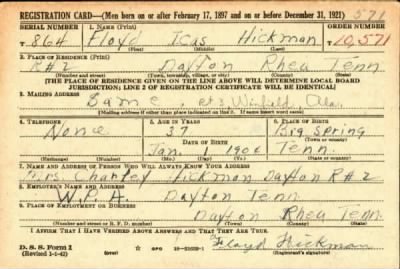 REGISTRATION CARD—(Men born on or after February 17, 1897 and on or before December 31, 1921)
SERIAL NUMBER 1. NAME (Print) ORDER NUMBER
T 864 Floyd Icas Hickman T 10,571
(First) (Middle) (Last)
2. PLACE OF RESIDENCE (Print)
R#2 Dayton Rhea Tenn
(Number and street) (Town, township, village, or city) (County) (State)
[THE PLACE OF RESIDENCE GIVEN ON THE LINE ABOVE WILL DETERMINE LOCAL BOARD
JURISDICTION; LINE 2 OF REGISTRATION CERTIFICATE WILL BE IDENTICAL]
3. MAILING ADDRESS
Same Winfield, Ala.
[Mailing address if other than place indicated on line 2. If same insert word same]
4. TELEPHONE 5. AGE IN YEARS 6. PLACE OF BIRTH
None 37 Big Spring
DATE OF BIRTH (Town or county)
Jan. 1 1906 Tenn.
(Exchange) (Number) (Mo.) (Day) (Yr.) (State or country)
7. NAME AND ADDRESS OF PERSON WHO WILL ALWAYS KNOW YOUR ADDRESS
Mrs Charley Hickman Dayton R#2
8. EMPLOYER'S NAME AND ADDRESS
W.P.A. Dayton Tenn.
9. PLACE OF EMPLOYMENT OR BUSINESS
Dayton Rhea Tenn.
(Number and street or R. F. D. number) (Town) (County) (State)
I AFFIRM THAT I HAVE VERIFIED ABOVE ANSWERS AND THAT THEY ARE TRUE.
D. S. S. Form 1
(Revised 1-1-42) (over) GPO Floyd Hickman
(Registrant's signature)